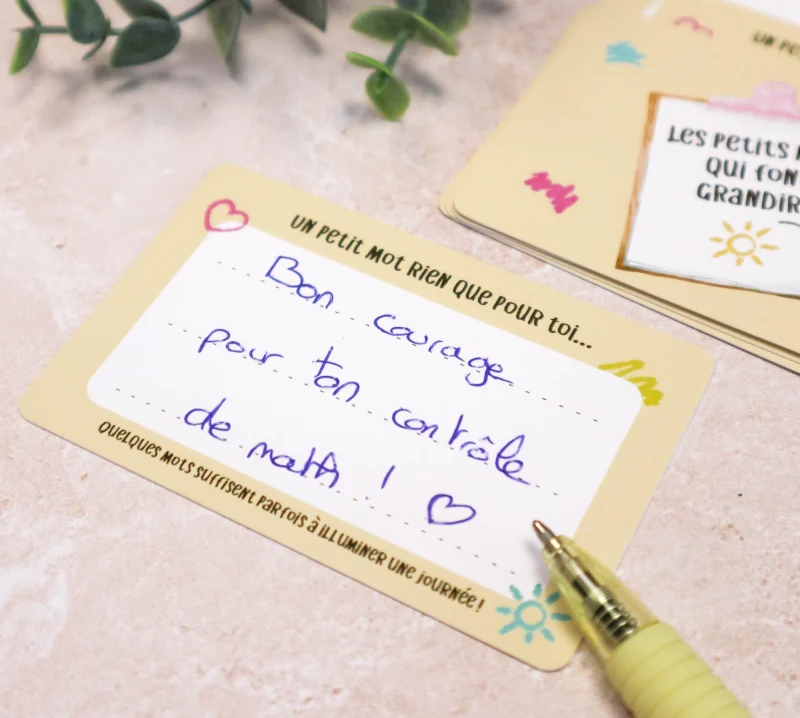 UN PETIT MOT RIEN QUE POUR TOI...
Bon courage
pour ton contrôle
de math ! ♡
QUELQUES MOTS SUFFISENT PARFOIS À ILLUMINER UNE JOURNÉE !
UN PE
LES PETITS
QUI FON
GRANDIR